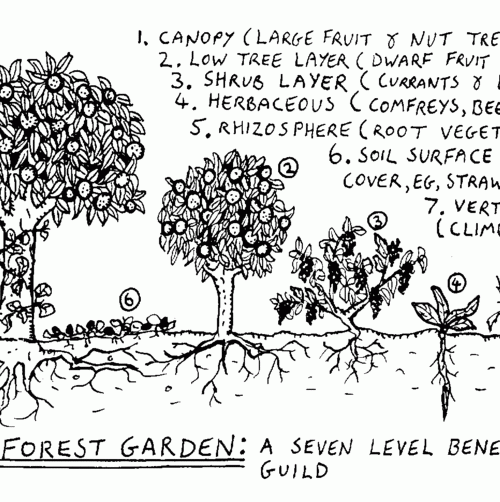 1. CANOPY (LARGE FRUIT & NUT TRE
2. LOW TREE LAYER (DWARF FRUIT
3. SHRUB LAYER (CURRANTS &
4. HERBACEOUS (COMFREYS, BEE
5. RHIZOSPHERE (ROOT VEGET
6. SOIL SURFACE
COVER, EG, STRAW
7. VERT
(CLIM
2
3
4
6
FOREST GARDEN: A SEVEN LEVEL BENE
GUILD